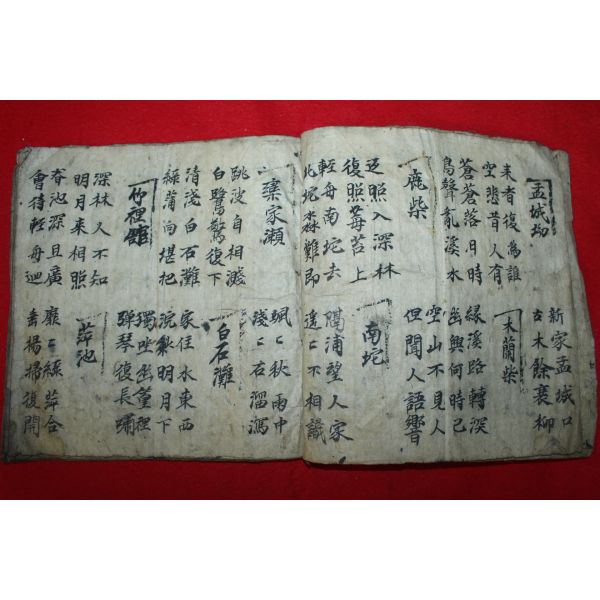 孟城坳
新家孟城口
古木餘衰柳
来者復為誰
空悲昔人有
木蘭柴
蒼蒼落日時
鳥聲亂溪水
緣溪路轉深
幽興何時已
鹿柴
空山不見人
但聞人語響
返照入深林
復照莓苔上
南垞
輕舟南垞去
北垞淼難即
隔浦望人家
遙〻不相識
欒家瀬
颯〻秋雨中
淺〻石溜瀉
跳波自相濺
白鷺驚復下
白石灘
清淺白石灘
綠蒲向堪把
家住水東西
浣紗明月下
竹裡館
獨坐幽篁裡
彈琴復長嘯
深林人不知
明月来相照
萍池
春池深且廣
會待輕舟迴
靡〻綠萍合
垂楊掃復開